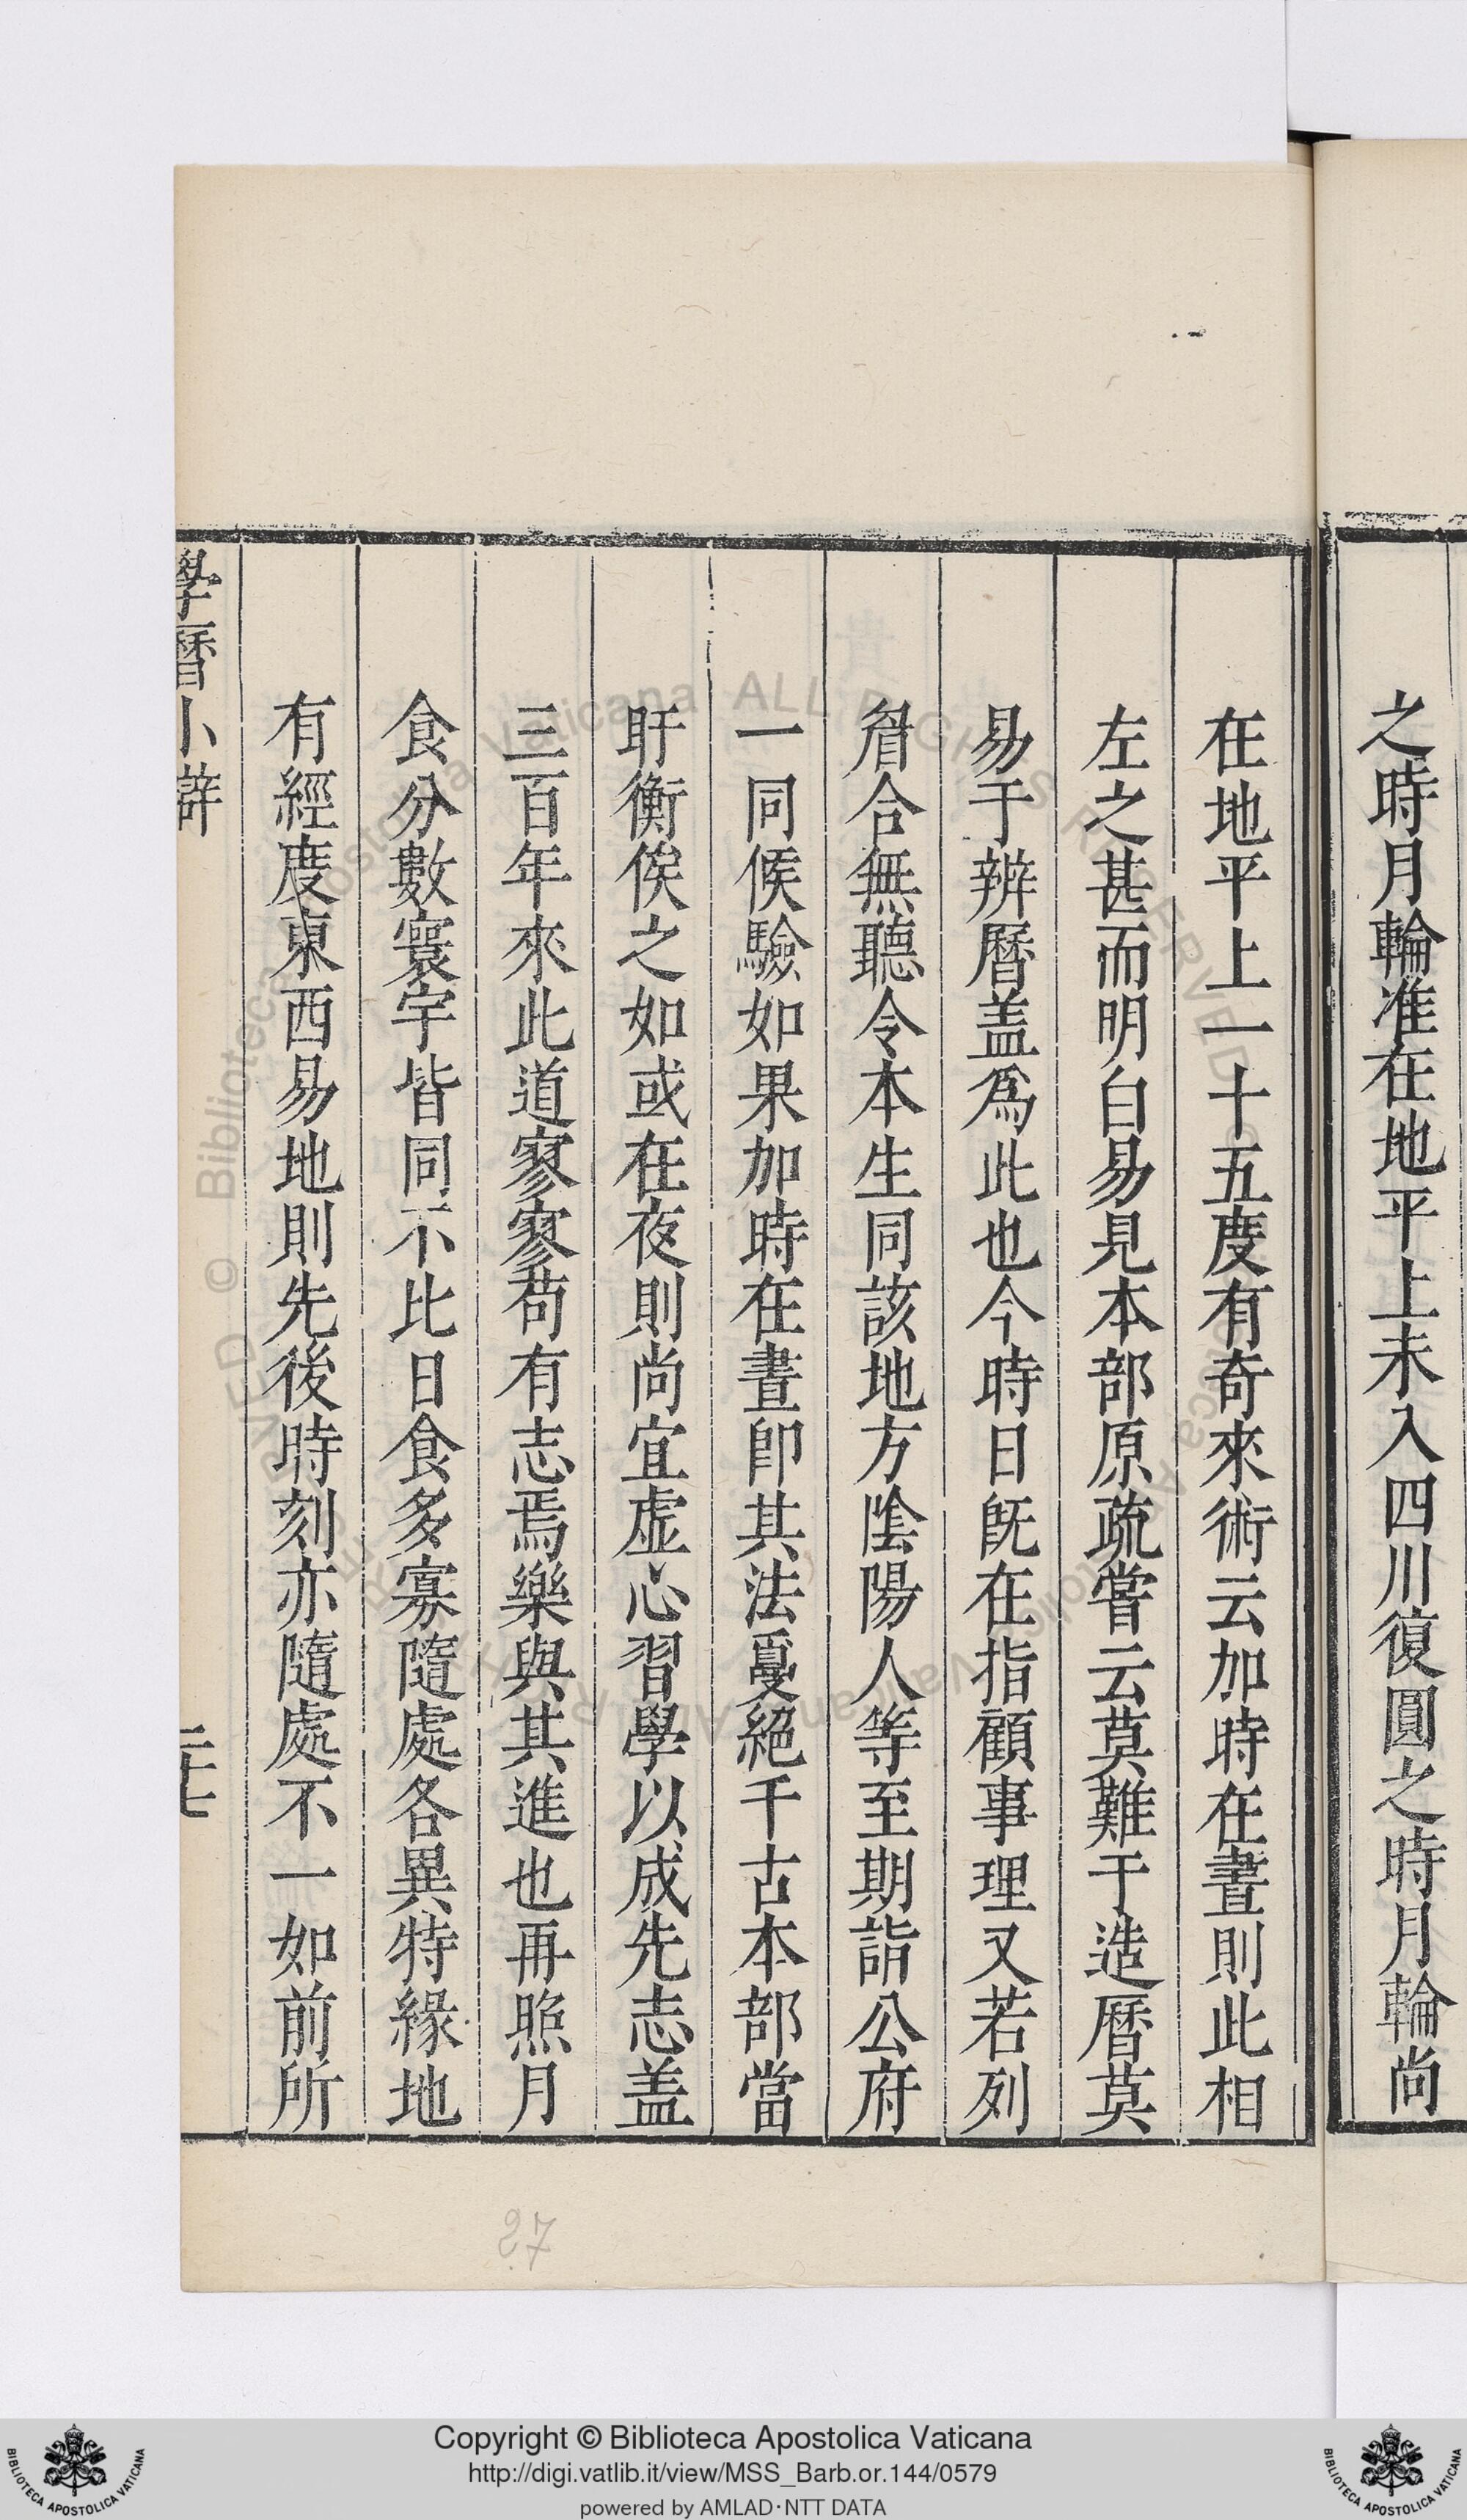 之時月輪准在地平上未入四川復圓之時月輪尚
在地平上一十五度有奇來術云加時在晝則此相
左之甚而明白易見本部原疏嘗云莫難于造曆莫
易于辨曆盖爲此也今時日旣在指顧事理又若列
眉合無聽令本生同該地方陰陽人等至期詣公府
一同候驗如果加時在晝卽其法敻絕千古本部當
盱衡俟之如或在夜則尚宜虛心習學以成先志盖
三百年來此道寥寥苟有志焉樂與其進也再照月
食分數寰宇皆同不比日食多寡隨處各異特緣地
有經度東西易地則先後時刻亦隨處不一如前所
學曆小辯
二十七
27
Copyright © Biblioteca Apostolica Vaticana
http://digi.vatlib.it/view/MSS_Barb.or.144/0579
powered by AMLAD·NTT DATA